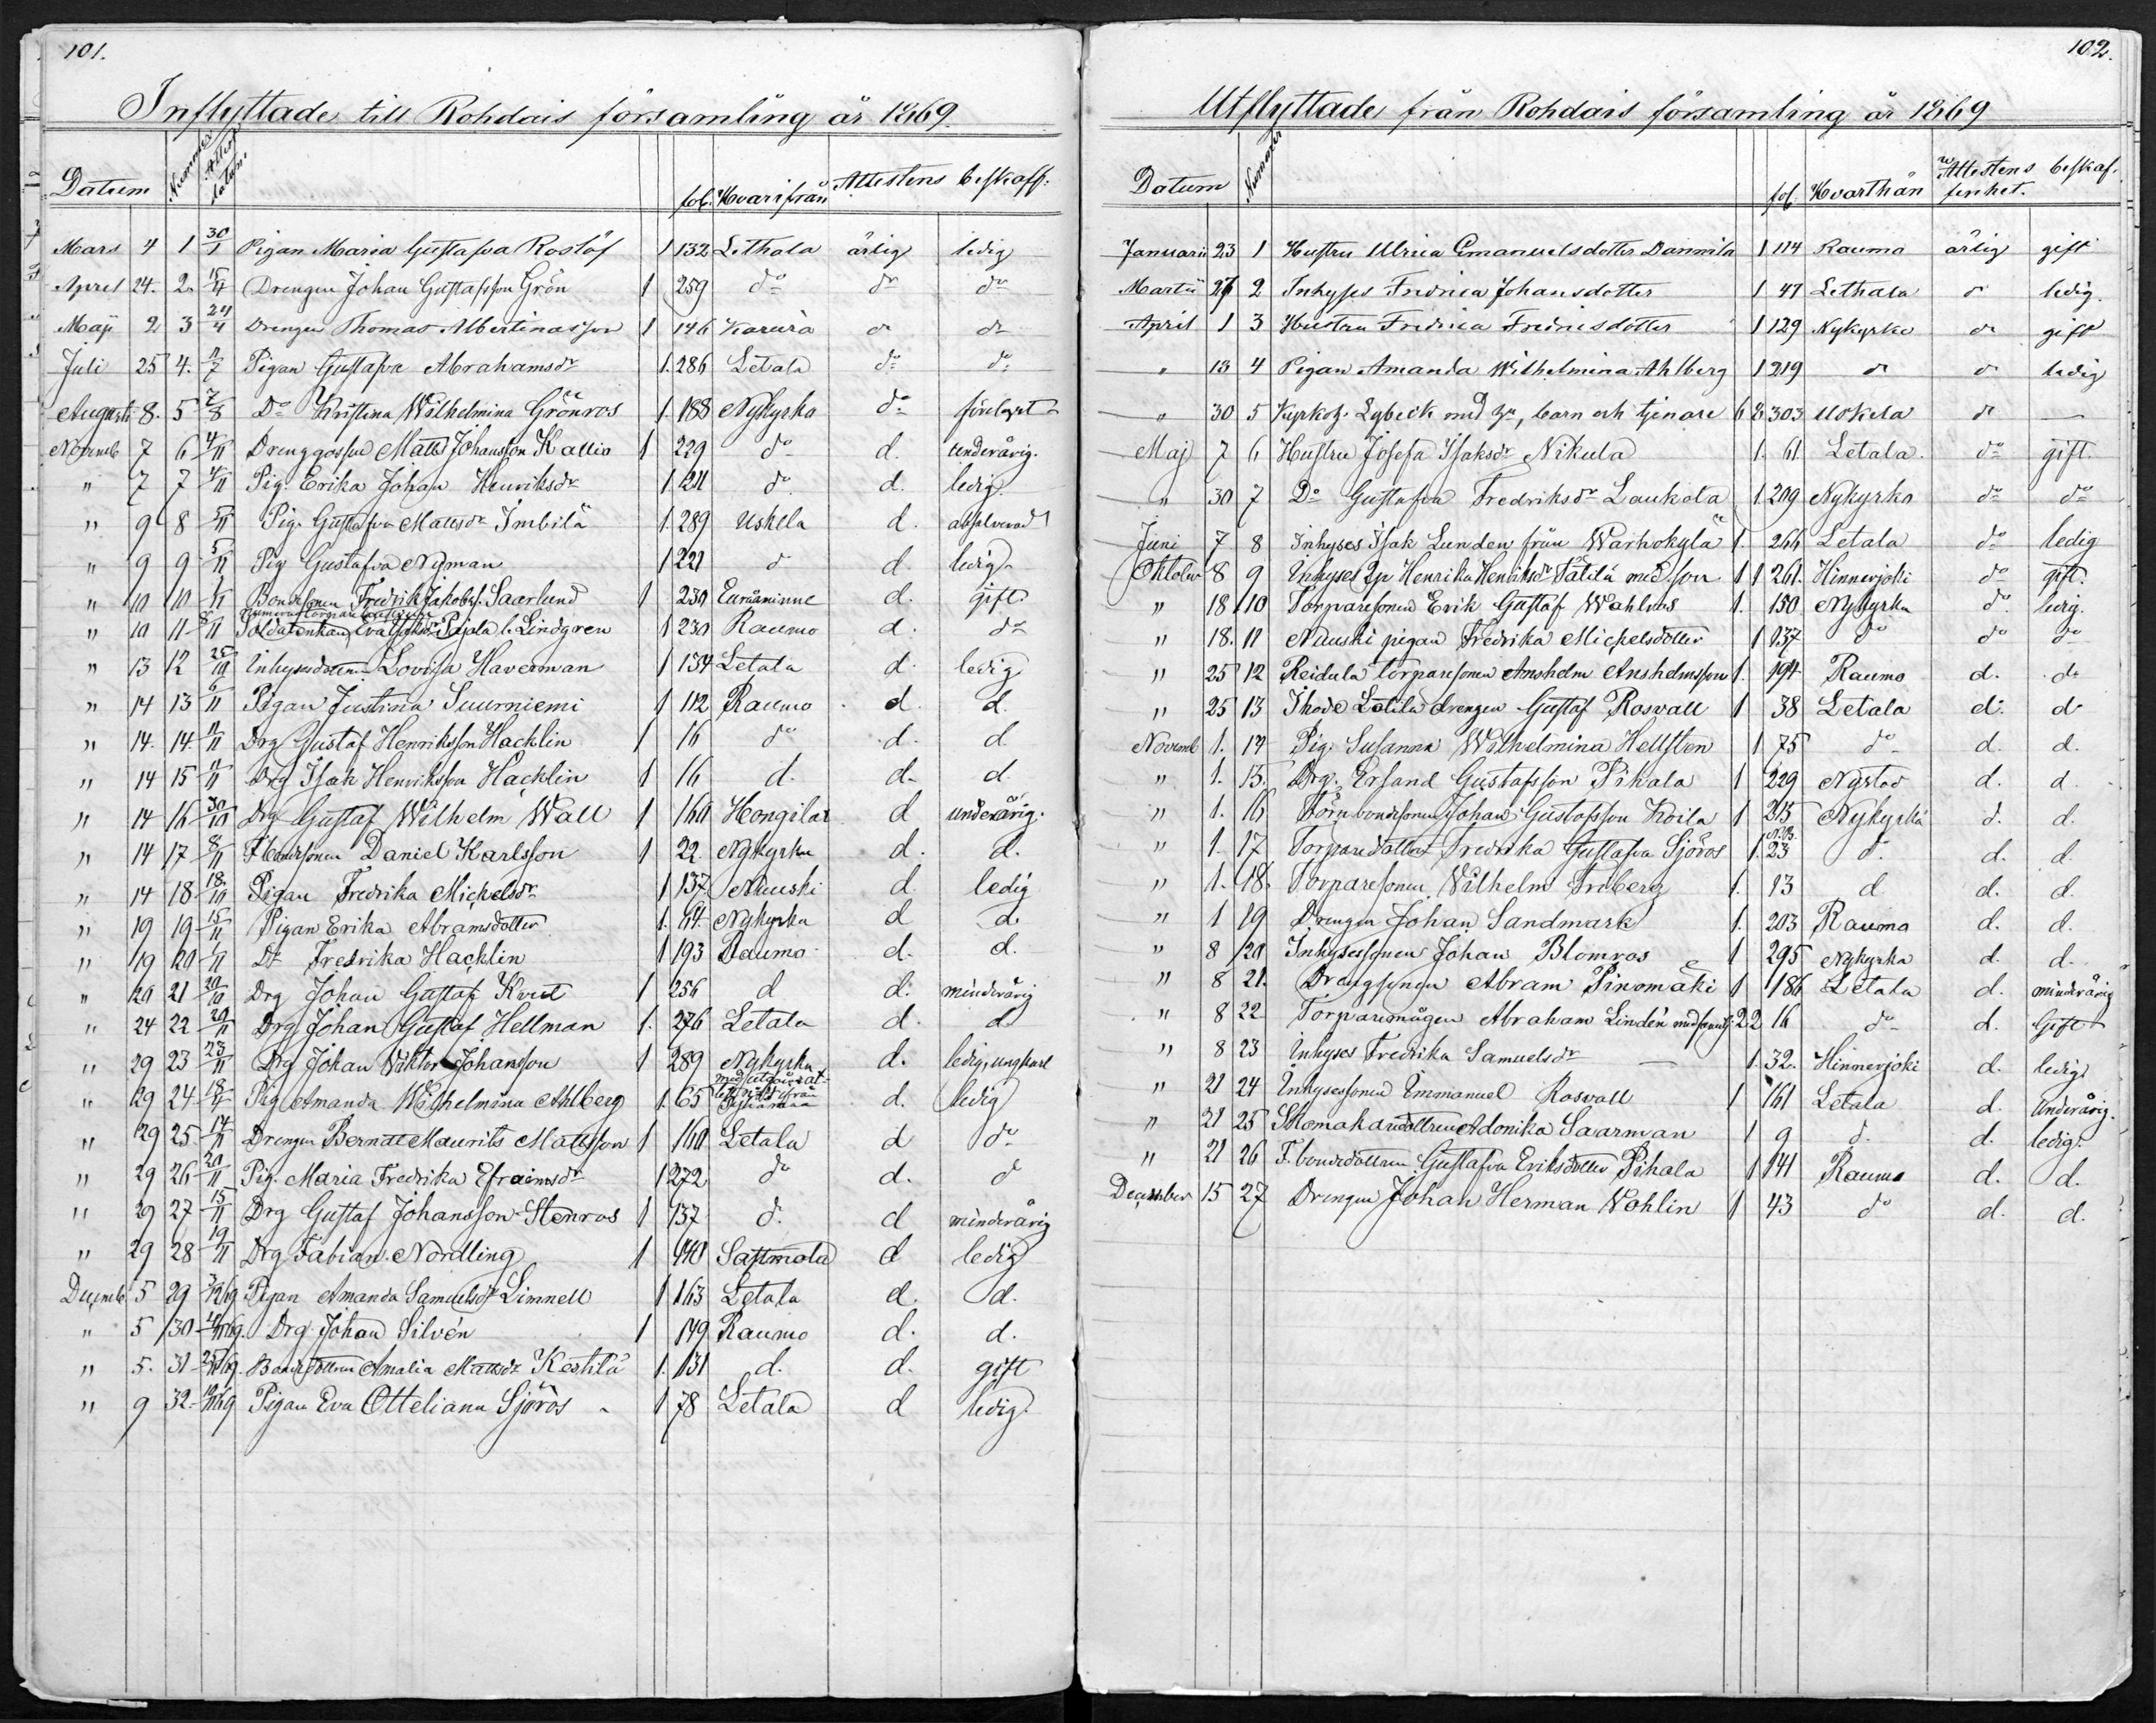 101.
Inflyttade till Rohdais församling år 1869.
Datum Nummer Attest datum. fol. Hvarifrån Attestens beskaff.
Mars 4 1 30/1 Pigan Maria Gustafva Roslöf 1 132 Lethala ärlig ledig
April 24. 2. 15/4 Drengen Johan Gustafsson Grön 1 259 do do do
Maji 2 3 24/4 Drengen Thomas Albertinasson 1 146 do do
Juli 25 4. /7 Pigan Gustafva Abrahamsdr 1. 286 Letala do do
Augusti 8. 5 7/8 Do Kristina Wilhelmina Grönros 1. 188 Nykyrko do
Novemb 7 6 4/11 Drenggossen Matts Johansson Kallio 1 229 do d. underårig.
" 7 7 4/11 Pig. Erika Johan Henriksdr 1. 121 do d. ledig.
" 9 8 5/11 Pig. Gustafva Mattsdr Imbilä 1. 289 Uskela d. absolverad
" 9 9 5/11 Pig Gustafva Nyman 1 221 d d. ledig
" 10 10 /11 Bondesonen Fredrik Jakobss. Saarlund 1 230 Euraåminne d. gift.
" 10 11 8/11 Soldatenkan Eva Pajala l. Lindgren 1 230 Raumo d. do
" 13 12 25/10 Inhysesdottren Lovisa Haverman 1 154 Letala d. ledig
" 14 13 6/11 Pigan Justina Suurniemi 1 112 Raumo d. d.
" 14. 14. 11/11 Drg Gustaf Henriksson Hacklin 1 16 do d. d.
" 14 15 11/11 Drg Isak Henriksson Hacklin 1 16 d. d. d.
" 14 16 30/10 Drg Gustaf Wilhelm Wall 1 160 Hongilax d underårig.
" 14 17 8/11 F. bondesonen Daniel Karlsson 1 22 Nykyrka d. d.
" 14 18 18/10 Pigan Fredrika Mickelsdr 1 137 Nauski d. ledig
" 19 19 15/11 Pigan Erika Abramsdotter 1. 64. Nykyrka d d.
" 19 20 /11 Do Fredrika Hacklin 1 193 Raumo d. d.
" 20 21 20/10 Drg Johan Gustaf Kvist 1 256 d d. minderårig
" 24 22 20/11 Drg Johan Gustaf Hellman 1. 276 Letala d. d
" 29 23 23/11 Drg Johan Viktor Johansson 1 289 Nykyrka d. ledig, ungkarl
" 29 24 18/4 Pig Amanda Wilhelmina Ahlberg 1. 65 d. ledig
" 29 25 14/11 Drengen Bernat Maurits Mattsson 1 160 Letala d do
" 29 26 20/11 Pig. Maria Fredrika Efraimsdr 1 272 do d. d
" 29 27 15/11 Drg Gustaf Johansson Stenros 1 137 d. d minderårig
" 29 28 19/11 Drg Fabian Nordling 1 140 Sastmola d ledig
Decemb 5 29 3/12 69 Pigan Amanda Samuelsdr Limnell 1 163 Letala d. d.
" 5 30 69. Drg Johan Silvén 1 149 Raumo d. d.
" 5. 31 25/11 69. Bondedottren Amalia Mattsdr Kestilä 1. 131 d. d. gift
" 9 32. 69 Pigan Eva Otteliana Sjöros 1 78 Letala d ledig.
102.
Utflyttade från Rohdais församling år 1869
Datum Nummer fol. Hvarthän Attestens beskaffenhet.
Januarii 23 1 Hustru Ulrica Emanuelsdotter Danmila 1 114 Rauma ärlig gift
Martii 27 2 Inhyses Fredrica Johansdotter 1 47 Lethala do ledig.
April 1 3 Hustru Fredrica Fredriesdotter 1 129 Nykyrko do gift
" 13 4 Pigan Amanda Wilhelmina Ahlberg 1 219 do do ledig
" 30 5 Kyrkoh. Lybeck med , barn och tjenare 6 8 303 Uskela do —
Maj 7 6 Hustru Josefa Isaksdr Nikula 1. 61. Letala. do gift.
" 30 7 Do Gustafva Fredriksdr Laukola 1. 209 Nykyrko do do
Juni 7 8 Inhyses Isak Lunden från Warhokylä 1. 266 Letala do ledig
Oktober 8 9 Inhyses Henrika Henriksdr Tätilä med son 1 1 261. Hinnerjoki do gift.
" 18 10 Torparesonen Erik Gustaf Wahlros 1. 150 Nykyrka d. ledig.
" 18. 11 Nauski pigan Fredrika Mickelsdotter 1 137 do do do
" 25 12 Reidula torparesonen Ansholm Anshelmsson 1. 194 Raumo d. do
" 25 13 Ihode Latila drengen Gustaf Rosvall 1 38 Letala d. d
Novemb 1. 14 Pig. Susanna Wilhelmina Hellsten 1 75 do d. d.
" 1. 15. Drg. Ersand Gustafsson Pikala 1 229 Nystad d. d.
" 1. 16 bondesonen Johan Gustafsson Koila 1 215 Nykyrka d. d.
" 1. 17 Torparedottren Fredrika Gustafva Sjöros 1. N.B. 23 d. d. d.
" 1. 18. Torparesonen Wilhelm Friberg 1. 13 d d. d.
" 1 19 Drengen Johan Sandmark 1. 203 Raumo d. d.
" 8 20 Inhysessonen Johan Blomros 1 295 Nykyrka d. d.
" 8 21. Drengsonen Abram Pinomäki 1 186 Letala d. minderårig
" 8 22 Torparemågen Abraham Lindén med familj 2 2 16 do d. Gift
" 8 23 Inhyses Fredrika Samuelsdr 1. 32. Hinnerjoki d. ledig
" 21 24 Inhysessonen Emmanuel Rosvall 1 161 Letala d. Underårig.
" 21 25 Skomakaredottren Adonika Saarman 1 9 d. d. ledig.
" 21 26 F. bondedottren Gustafva Eriksdotter Pihala 1 141 Raumo d. d.
December 15 27 Drengen Johan Herman Wohlin 1 43 do d. d.